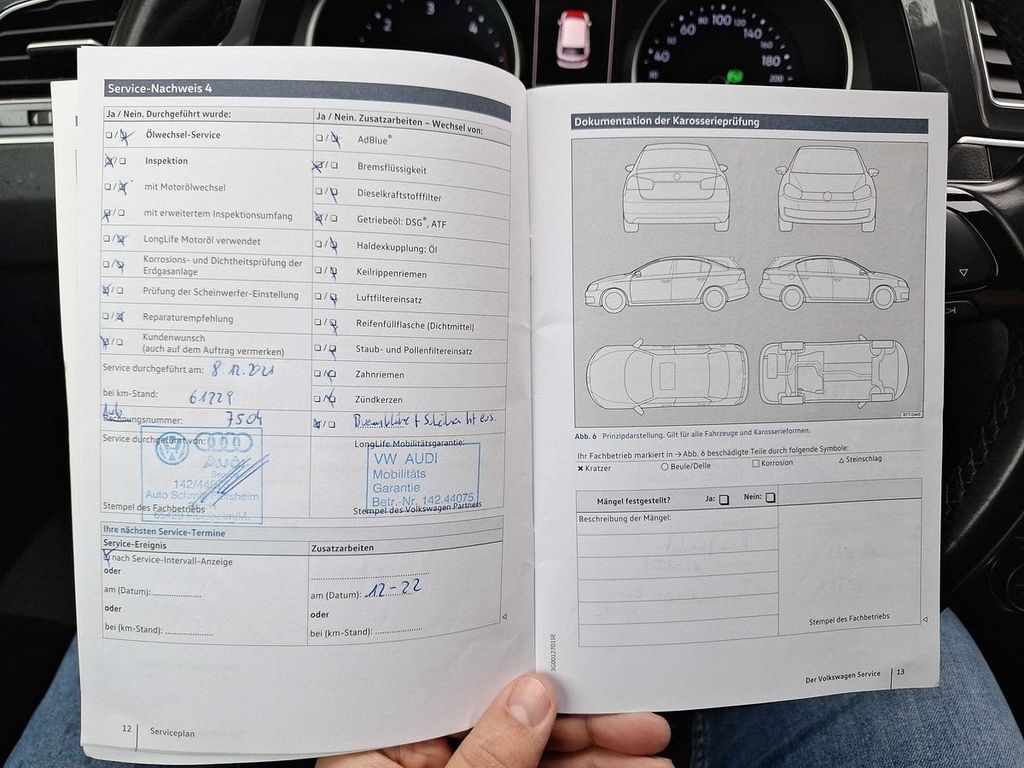 2
3
4
40
60
80
100
120
140
160
180
200
Service-Nachweis 4
Ja / Nein. Durchgeführt wurde:
Ölwechsel-Service
Inspektion
mit Motorölwechsel
mit erweitertem Inspektionsumfang
LongLife Motoröl verwendet
Korrosions- und Dichtheitsprüfung der
Erdgasanlage
Prüfung der Scheinwerfer-Einstellung
Reparaturempfehlung
Kundenwunsch
(auch auf dem Auftrag vermerken)
Service durchgeführt am: 8.12.2021
bei km-Stand: 61229
Rechnungsnummer: 7504
Service durchgeführt von:
Audi
Service
Auto Schmitt
Stempel des Fachbetriebs
Ja / Nein. Zusatzarbeiten – Wechsel von:
AdBlue®
Bremsflüssigkeit
Dieselkraftstofffilter
Getriebeöl: DSG®, ATF
Haldexkupplung: Öl
Keilrippenriemen
Luftfiltereinsatz
Reifenfüllflasche (Dichtmittel)
Staub- und Pollenfiltereinsatz
Zahnriemen
Zündkerzen
LongLife Mobilitätsgarantie:
VW AUDI
Mobilitäts
Garantie
Betr.-Nr. 142.44075
Stempel des Volkswagen Partners
Ihre nächsten Service-Termine
Service-Ereignis
nach Service-Intervall-Anzeige
oder
am (Datum):
oder
bei (km-Stand):
Zusatzarbeiten
am (Datum): 12-22
oder
bei (km-Stand):
12 Serviceplan
Dokumentation der Karosserieprüfung
Abb. 6 Prinzipdarstellung. Gilt für alle Fahrzeuge und Karosserieformen.
Ihr Fachbetrieb markiert in → Abb. 6 beschädigte Teile durch folgende Symbole:
Kratzer
Beule/Delle
Korrosion
Steinschlag
Mängel festgestellt? Ja: Nein:
Beschreibung der Mängel:
Stempel des Fachbetriebs
Der Volkswagen Service 13